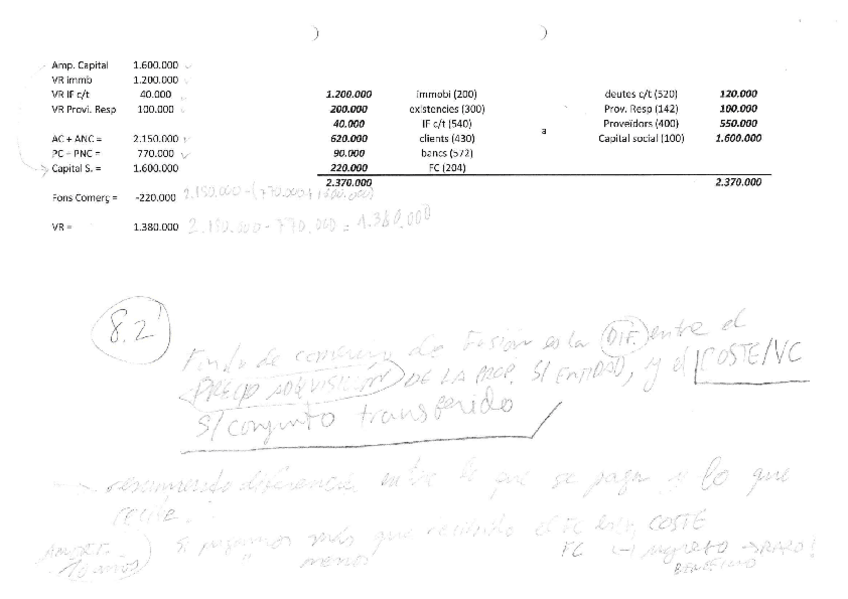 Amp. Capital 1.600.000
VR immb 1.200.000
VR IF c/t 40.000
VR Provi. Resp 100.000
AC + ANC = 2.150.000
PC - PNC = 770.000
Capital S. = 1.600.000
Fons Comerç = -220.000 2.150.000 - (770.000 + 1600.000)
VR = 1.380.000 2.150.000 - 770.000 = 1.380.000
1.200.000 immobi (200) deutes c/t (520) 120.000
200.000 existencies (300) Prov. Resp (142) 100.000
40.000 IF c/t (540) Proveïdors (400) 550.000
620.000 clients (430) a Capital social (100) 1.600.000
90.000 bancs (572)
220.000 FC (204)
2.370.000 2.370.000
8.2
Fondo de comercio de Fusión es la DIF. entre el
PRECIO ADQUISICIÓN DE LA PROP. S/ ENTIDAD, y el COSTE/VC
S/ conjunto transferido
resumiendo diferencia entre lo que se paga y lo que
recibe.
Si pagamos más que recibido el FC es COSTE
" menos FC → ingreso → RARO!
BENEFICIO
AMORT.
10 años